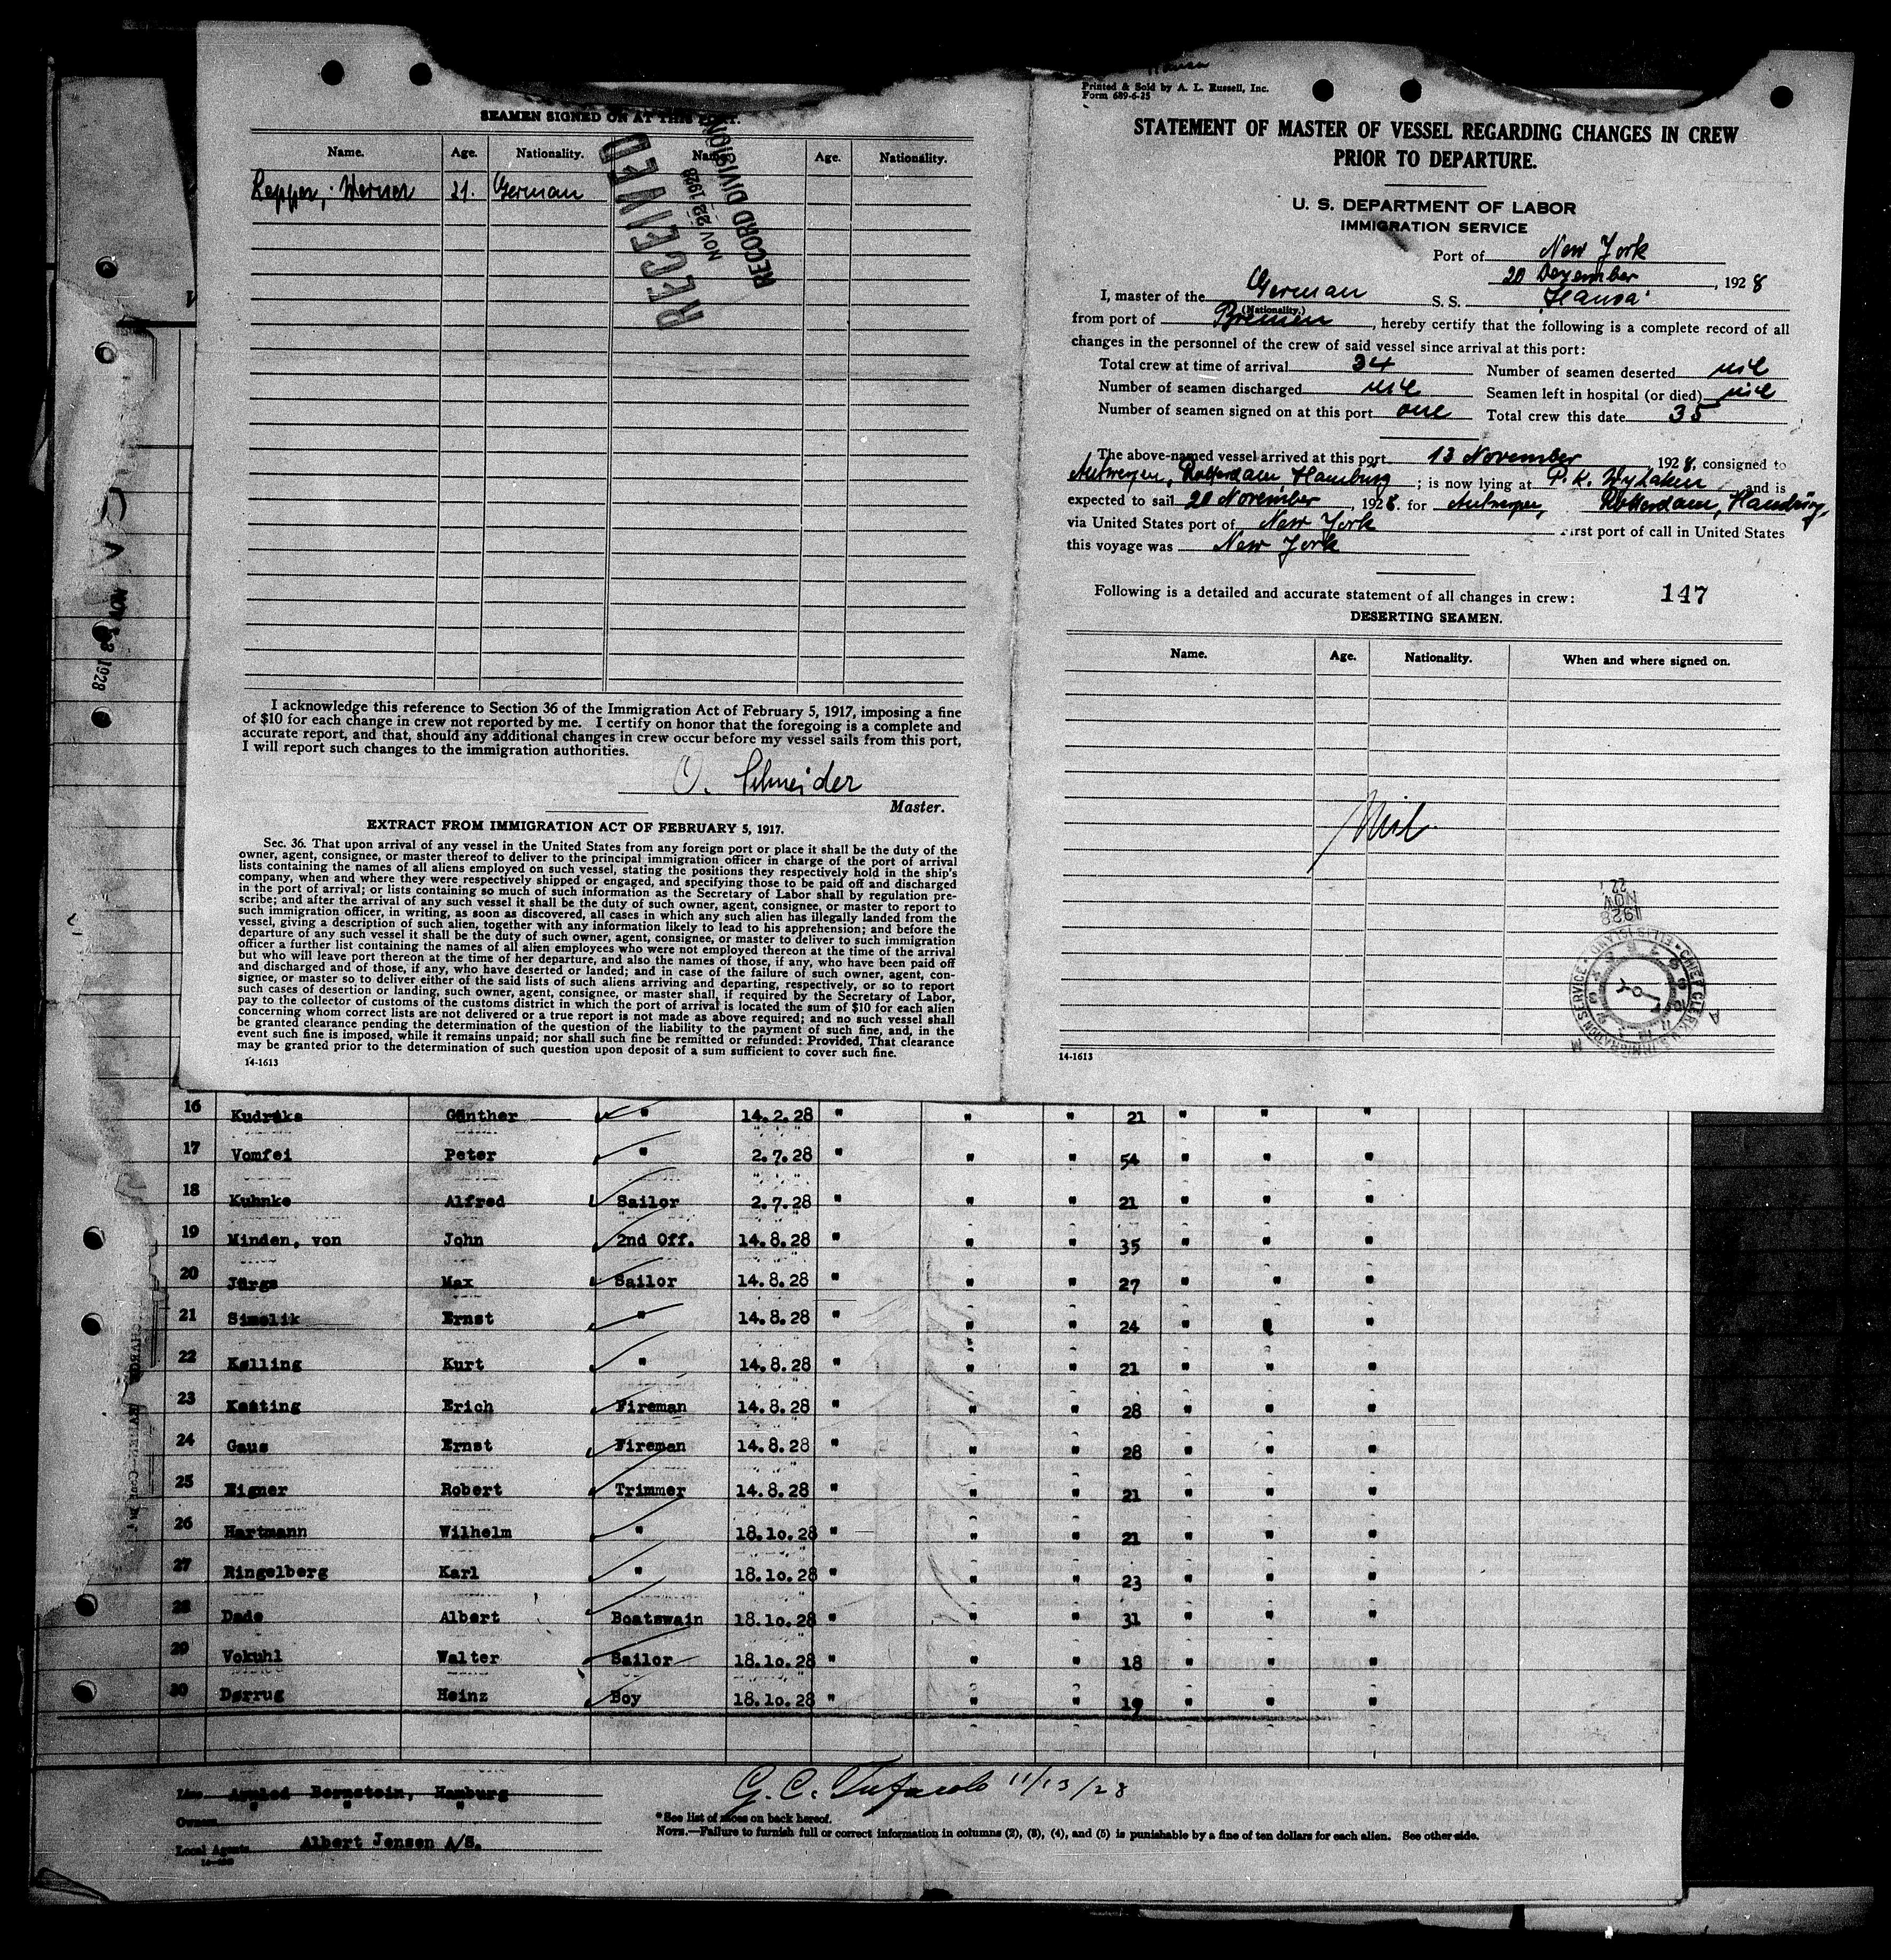 SEAMEN SIGNED ON AT THIS PORT.
Name. Age. Nationality. Name. Age. Nationality.
Werner 21. German
RECEIVED
NOV 22 1928
RECORD DIVISION
I acknowledge this reference to Section 36 of the Immigration Act of February 5, 1917, imposing a fine
of $10 for each change in crew not reported by me. I certify on honor that the foregoing is a complete and
accurate report, and that, should any additional changes in crew occur before my vessel sails from this port,
I will report such changes to the immigration authorities.
O. Schneider
Master.
EXTRACT FROM IMMIGRATION ACT OF FEBRUARY 5, 1917.
Sec. 36. That upon arrival of any vessel in the United States from any foreign port or place it shall be the duty of the
owner, agent, consignee, or master thereof to deliver to the principal immigration officer in charge of the port of arrival
lists containing the names of all aliens employed on such vessel, stating the positions they respectively hold in the ship's
company, when and where they were respectively shipped or engaged, and specifying those to be paid off and discharged
in the port of arrival; or lists containing so much of such information as the Secretary of Labor shall by regulation pre-
scribe; and after the arrival of any such vessel it shall be the duty of such owner, agent, consignee, or master to report to
such immigration officer, in writing, as soon as discovered, all cases in which any such alien has illegally landed from the
vessel, giving a description of such alien, together with any information likely to lead to his apprehension; and before the
departure of any such vessel it shall be the duty of such owner, agent, consignee, or master to deliver to such immigration
officer a further list containing the names of all alien employees who were not employed thereon at the time of the arrival
but who will leave port thereon at the time of her departure, and also the names of those, if any, who have been paid off
and discharged and of those, if any, who have deserted or landed; and in case of the failure of such owner, agent, con-
signee, or master so to deliver either of the said lists of such aliens arriving and departing, respectively, or so to report
such cases of desertion or landing, such owner, agent, consignee, or master shall, if required by the Secretary of Labor,
pay to the collector of customs of the customs district in which the port of arrival is located the sum of $10 for each alien
concerning whom correct lists are not delivered or a true report is not made as above required; and no such vessel shall
be granted clearance pending the determination of the question of the liability to the payment of such fine, and, in the
event such fine is imposed, while it remains unpaid; nor shall such fine be remitted or refunded: Provided, That clearance
may be granted prior to the determination of such question upon deposit of a sum sufficient to cover such fine.
14-1613
Printed & Sold by A. L. Russell, Inc.
Form 689-6-25
STATEMENT OF MASTER OF VESSEL REGARDING CHANGES IN CREW
PRIOR TO DEPARTURE.
U. S. DEPARTMENT OF LABOR
IMMIGRATION SERVICE
Port of New York
20 Dezember, 1928
I, master of the German S. S. Hansa
(Nationality.)
from port of Bremen, hereby certify that the following is a complete record of all
changes in the personnel of the crew of said vessel since arrival at this port:
Total crew at time of arrival 34 Number of seamen deserted nil
Number of seamen discharged nil Seamen left in hospital (or died) nil
Number of seamen signed on at this port one Total crew this date 35
The above-named vessel arrived at this port 13 November 1928, consigned to
Antwerpen, Rotterdam Hamburg; is now lying at and is
expected to sail 20 November, 1928. for Antwerpen, Rotterdam, Hamburg,
via United States port of New York First port of call in United States
this voyage was New York
Following is a detailed and accurate statement of all changes in crew: 147
DESERTING SEAMEN.
Name. Age. Nationality. When and where signed on.
Nil.
NOV 22
1928
CHIEF CLERK U.S. IMMIGRATION SERVICE ELLIS ISLAND
14-1613
NOV 1928
16 Kudraks Günther " 14.2.28 " " " 21 " " "
17 Vomfei Peter " 2.7.28 " " " 54 " " "
18 Kuhnke Alfred Sailor 2.7.28 " " " 21 " " "
19 Minden, von John 2nd Off. 14.8.28 " " " 35 " " "
20 Jürgs Max Sailor 14.8.28 " " " 27 " " "
21 Simelik Ernst " 14.8.28 " " " 24 " " "
22 Kølling Kurt " 14.8.28 " " " 21 " " "
23 Kesting Erich Fireman 14.8.28 " " " 28 " " "
24 Gaus Ernst Fireman 14.8.28 " " " 28 " " "
25 Eigner Robert Trimmer 14.8.28 " " " 21 " " "
26 Hartmann Wilhelm " 18.10.28 " " " 21 " " "
27 Ringelberg Karl " 18.10.28 " " " 23 " " "
28 Dade Albert Boatswain 18.10.28 " " " 31 " " "
29 Vokuhl Walter Sailor 18.10.28 " " " 18 " " "
30 Dørrug Heinz Boy 18.10.28 " " " 19 " " "
Line Arnold Bernstein, Hamburg
Owners " " "
Local Agents Albert Jensen A/S.
G. C. 11/13/28
*See list of races on back hereof.
NOTE.—Failure to furnish full or correct information in columns (2), (3), (4), and (5) is punishable by a fine of ten dollars for each alien. See other side.